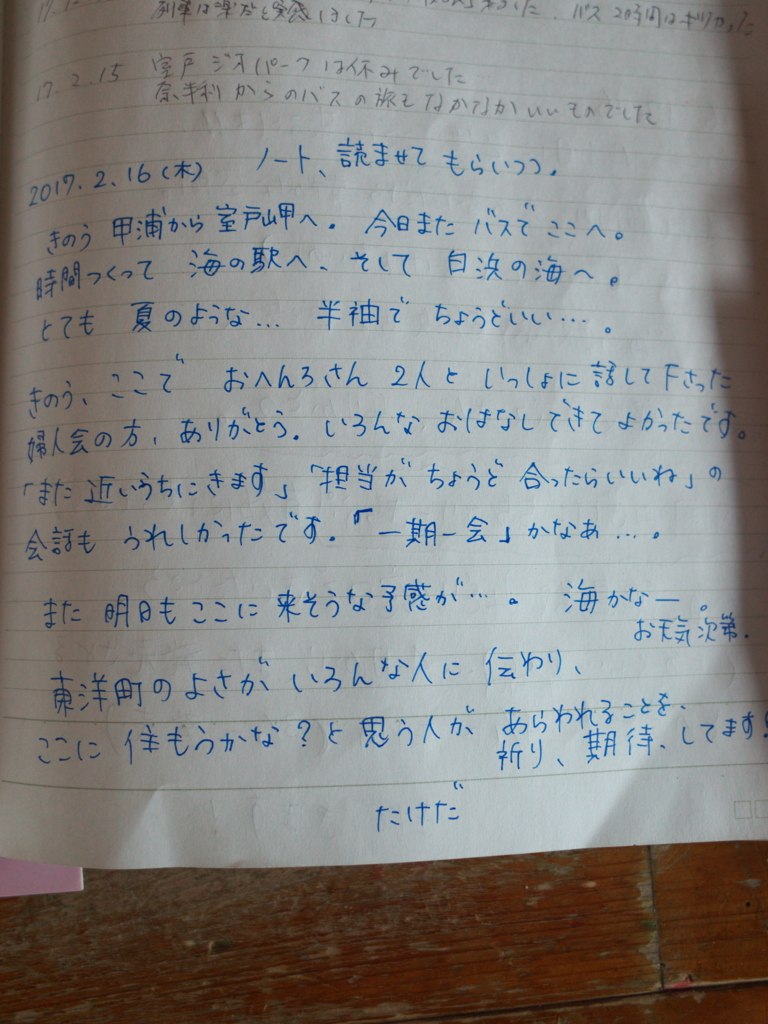 列車は楽だと実感しました
バス 20時間は
17.2.15 室戸ジオパークは休みでした
奈半利からのバスの旅もなかなかいいものでした
2017.2.16(木) ノート、読ませて もらいつつ。
きのう 甲浦から 室戸岬へ。 今日また バスで ここへ。
時間つくって 海の駅へ、そして 白浜の海へ。
とても 夏のような… 半袖で ちょうどいい…。
きのう、ここで おへんろさん 2人と いっしょに 話して下さった
婦人会の方、ありがとう。いろんな おはなしできて よかったです。
「また 近いうちにきます」「担当が ちょうど 合ったらいいね」の
会話も うれしかったです。「一期一会」かなぁ…。
また 明日も ここに 来そうな予感が…。 海かなー。
お天気次第.
東洋町のよさが いろんな人に 伝わり、
ここに 住もうかな?と 思う人が あらわれることを、
祈り、期待、してます!
たけだ